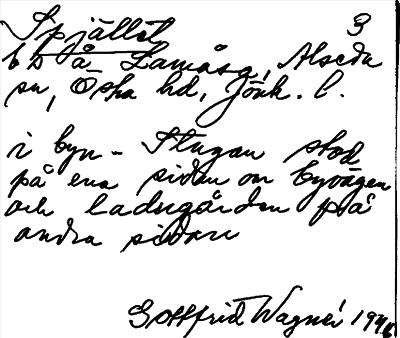 Spjället 3
bs å Lamåsa, Alseda
sn, Östra hd, Jönk. l.
i byn - Stugan stod
på ena sidan om byvägen
och ladugården på
andra sidan
Gottfrid Wagner 1946